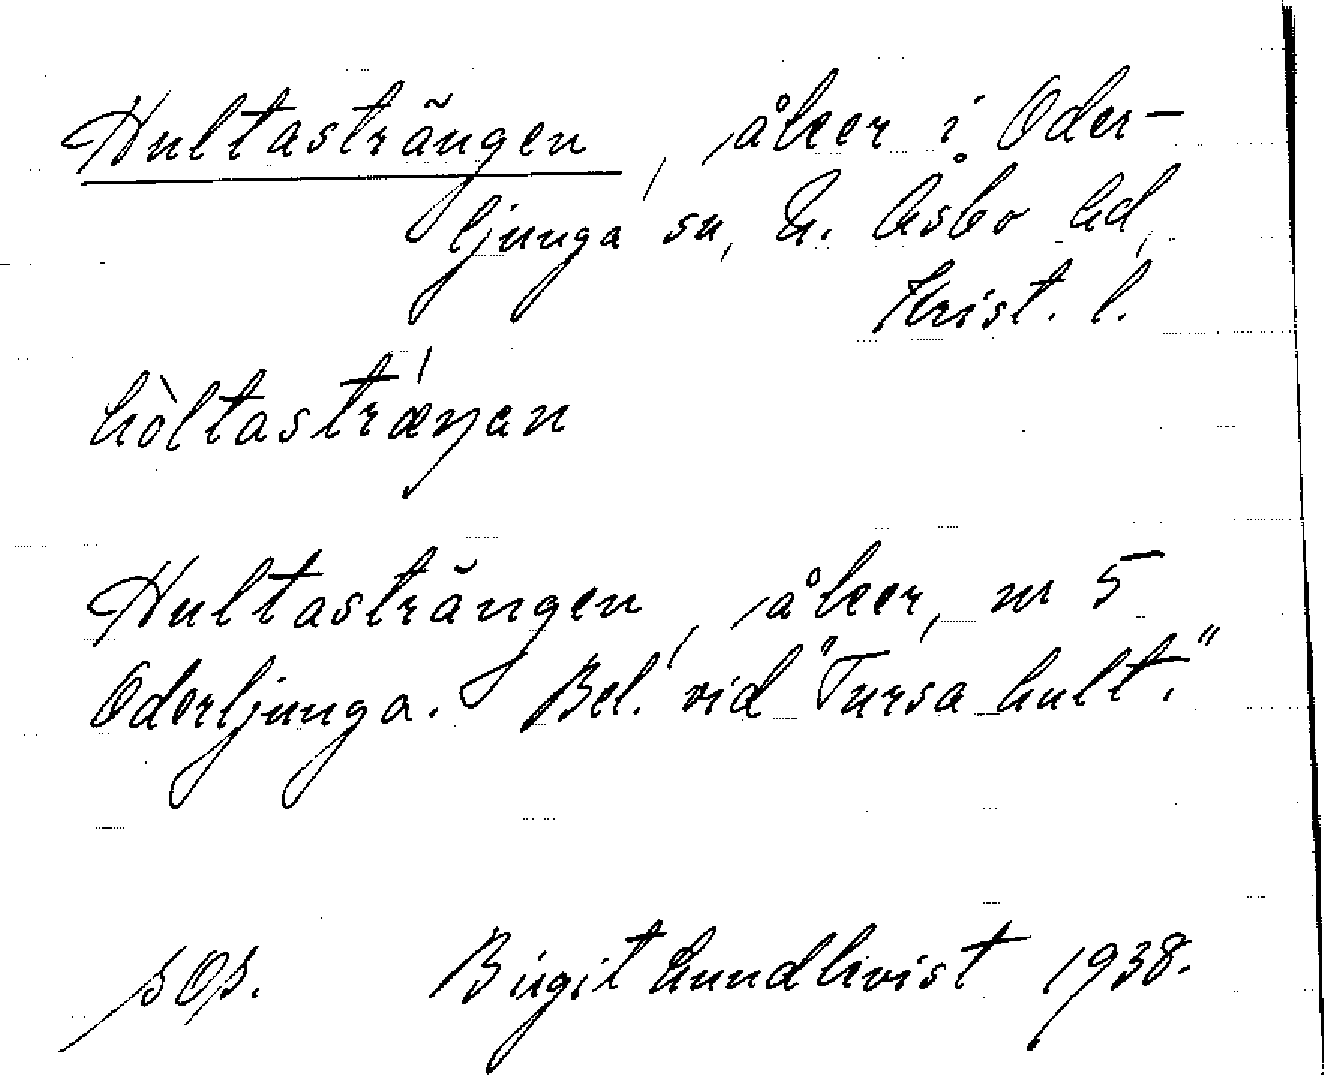 Hultasträngen, åker i Oder-
ljunga sn, N. Åsbo hd,
Krist. l.
hòltastræ´ŋan
Hultasträngen, åker, nr 5
Oderljunga. Bel. vid "Tursa hult."
Birgit Lundkvist 1938.